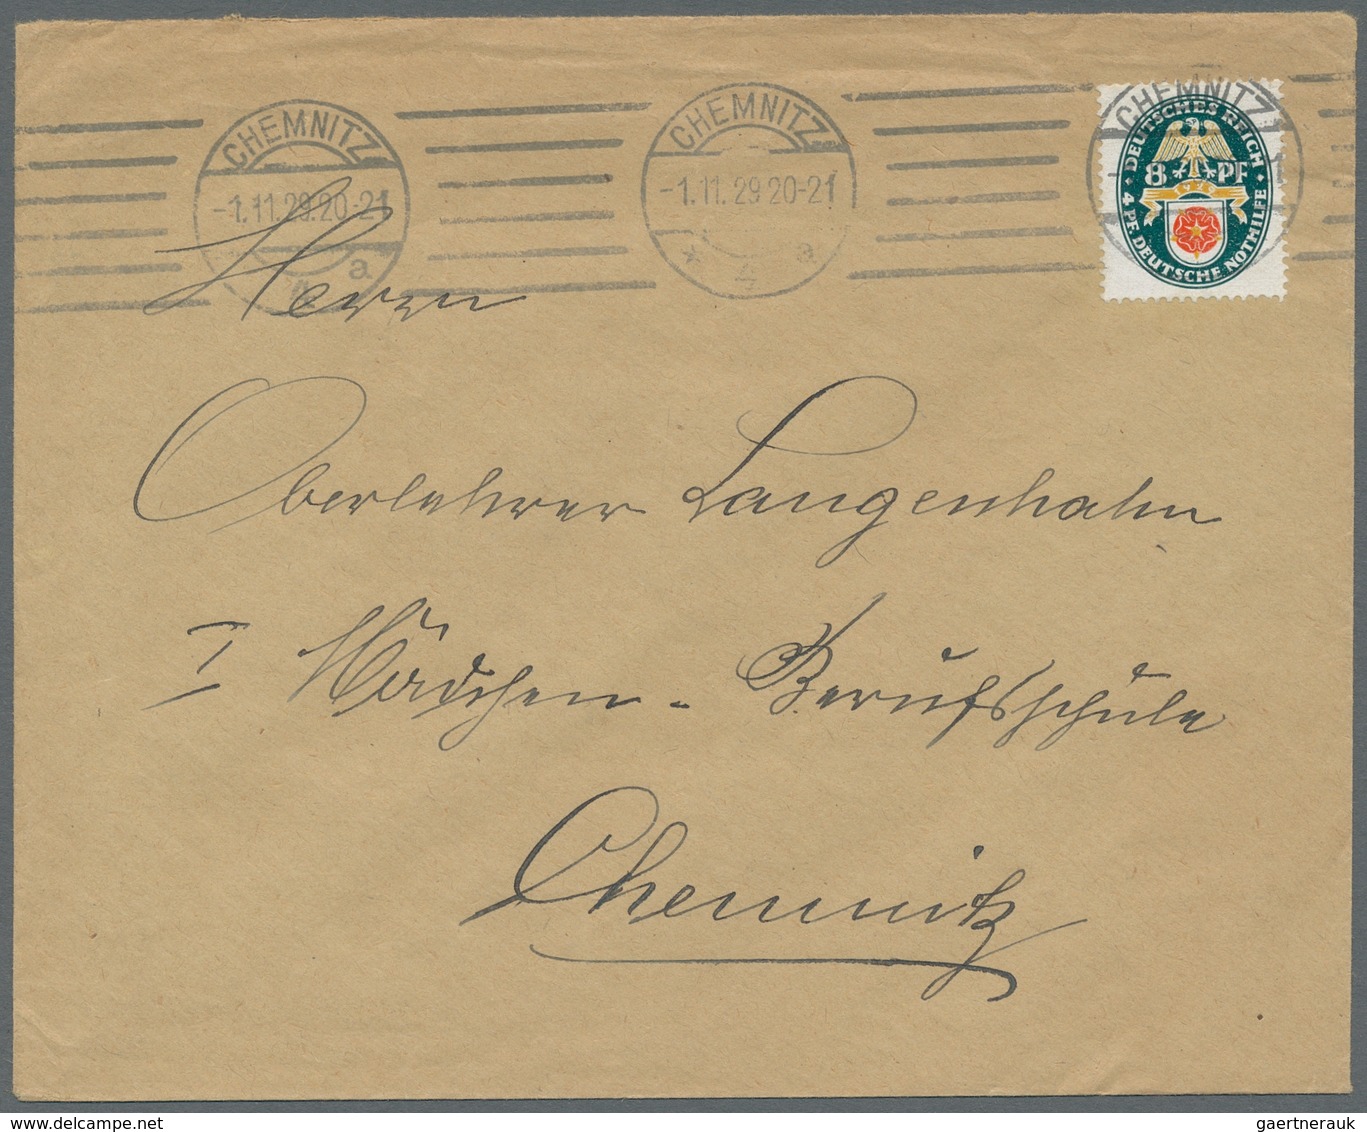 CHEMNITZ
-1.11.29.20-21
a
CHEMNITZ
-1.11.29 20-21
* 4 a
CHEMNITZ
DEUTSCHES REICH
8 + 4 PF
4 PF. DEUTSCHE NOTHILFE
Herrn
Oberlehrer Langenhahn
I Mädchen-Berufsschule
Chemnitz
gaertnerauk